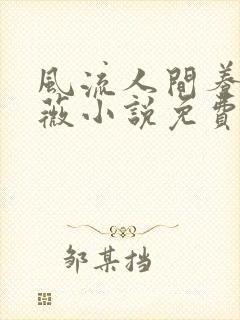 風流人間養
薇小說免費
邹某挡